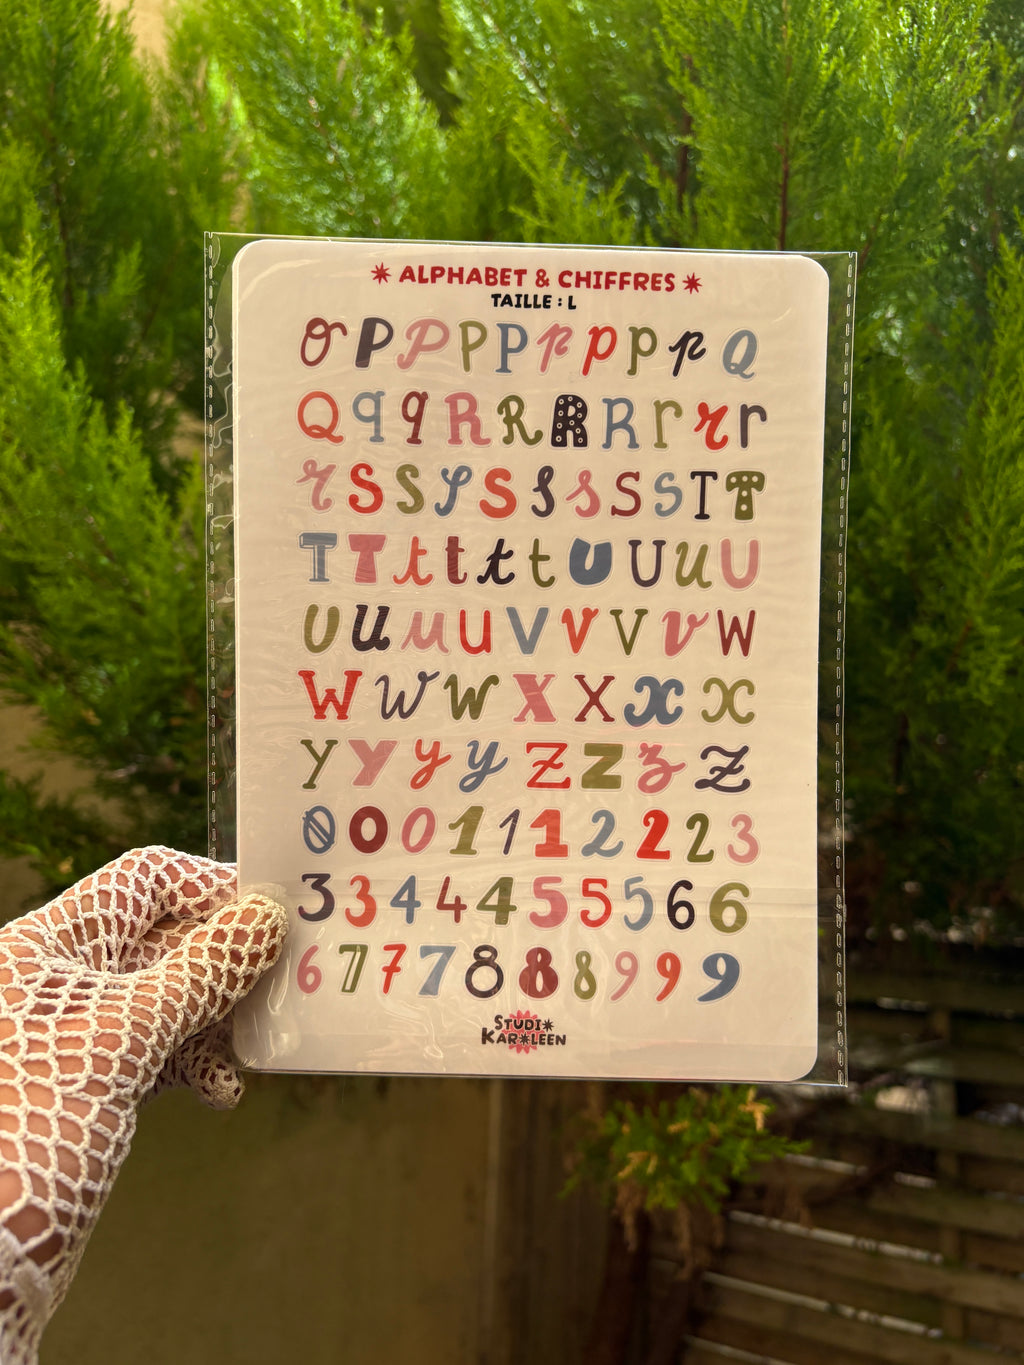 ALPHABET & CHIFFRES
TAILLE : L
o P P P P p p p p Q
Q q q R R R R r r r
r S S S S s s s s T T
T T t t t t U U u U
U u u u V v V v W
W w w X X x x
y y y y Z Z z z
0 0 0 1 1 1 2 2 2 3
3 3 4 4 4 5 5 5 6 6
6 7 7 7 8 8 8 9 9 9
STUDIO
KAROLEEN